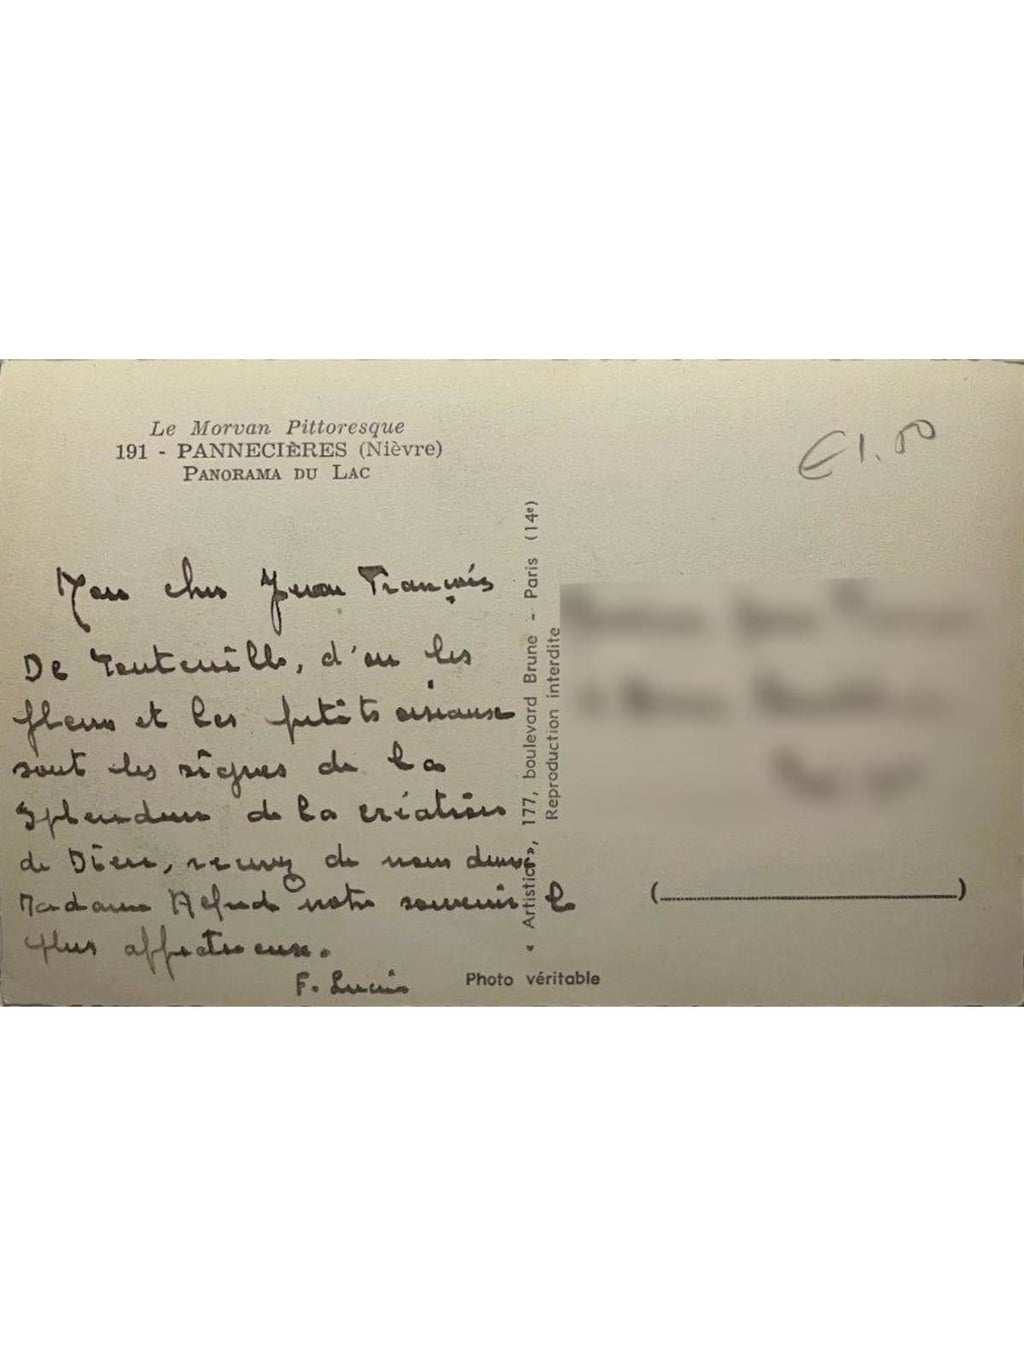 Le Morvan Pittoresque
191 - PANNECIÈRES (Nièvre)
PANORAMA DU LAC
€1.50
Mon cher Jean François
De , d'ou les
fleurs et les petits oiseaux
sont les signes de la
Splendeur de la création
de Dieu, recevez de nous deux,
Madame Alfred notre souvenir le
plus affectueux.
F. Lucis
« Artistic », 177, boulevard Brune - Paris (14e)
Reproduction interdite
Photo véritable